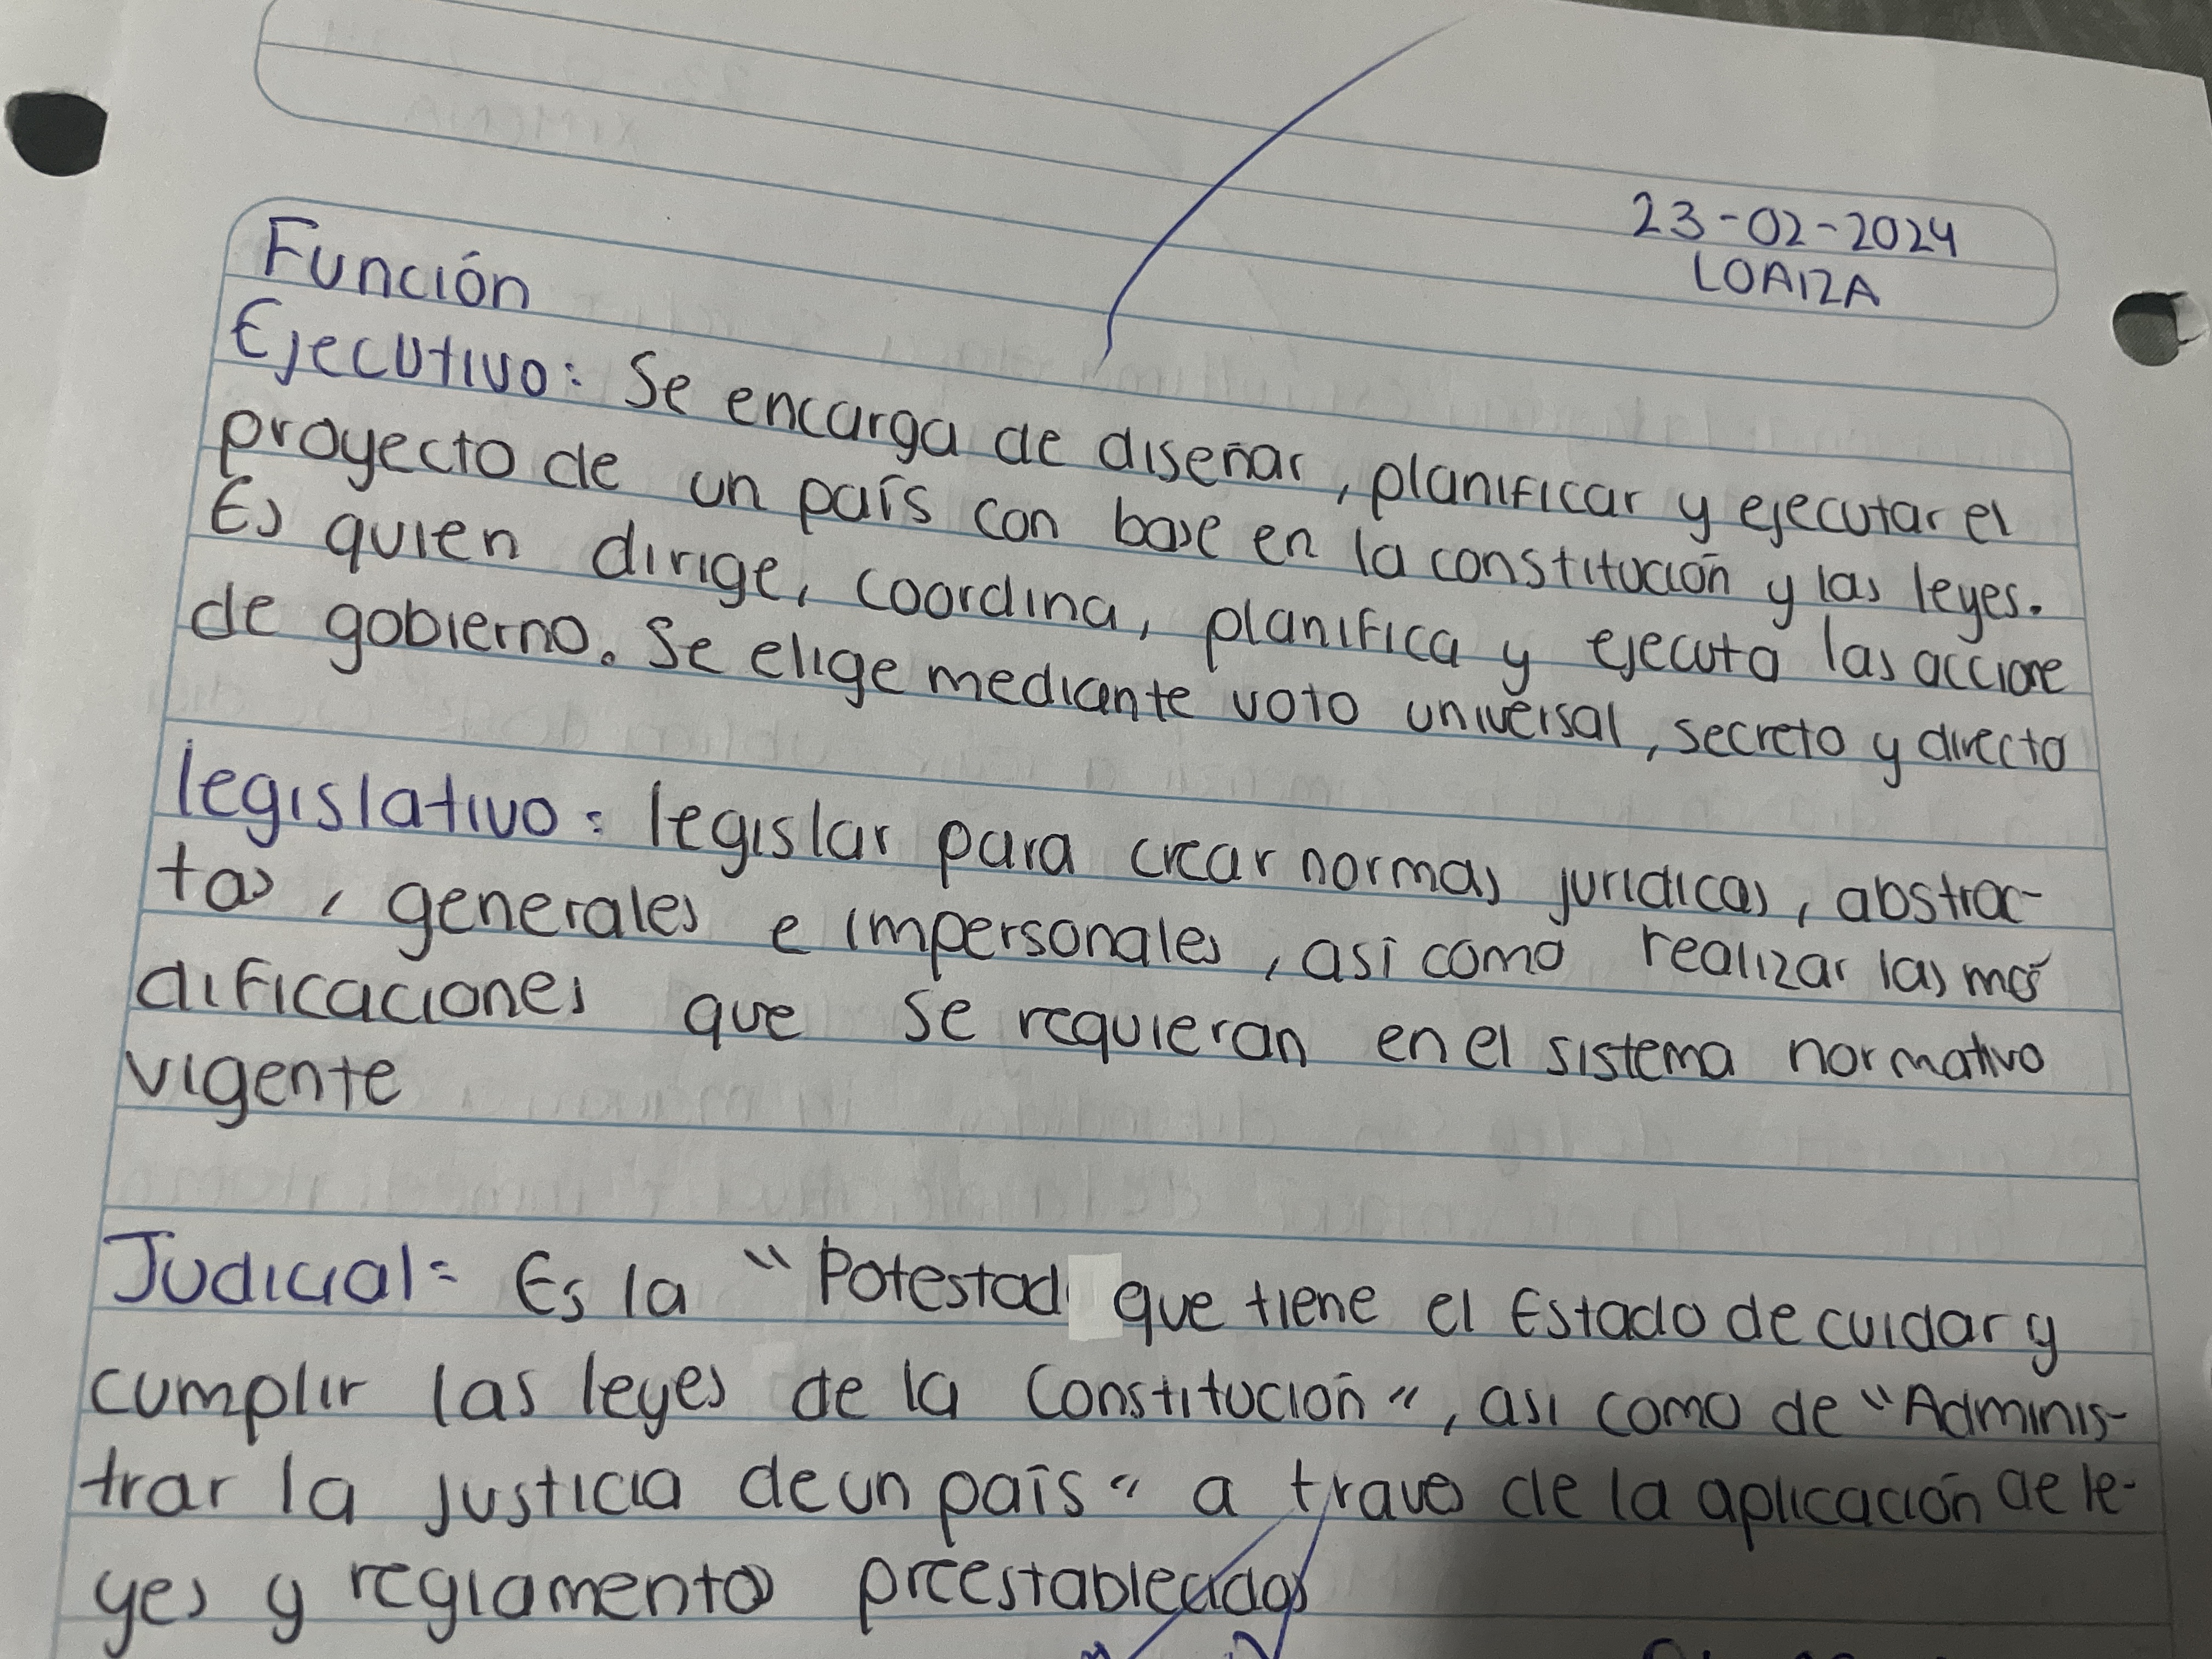 23-02-2024
LOAIZA
Función
Ejecutivo: Se encarga de diseñar, planificar y ejecutar el
proyecto de un país con base en la constitución y las leyes.
Es quien dirige, coordina, planifica y ejecuta las accione
de gobierno. Se elige mediante voto universal, secreto y directo
legislativo: legislar para crear normas juridicas, abstrac-
tas, generales e impersonales, asi como realizar las mo-
dificaciones que se requieran en el sistema normativo
vigente
Judicial: Es la "Potestad que tiene el Estado de cuidar y
cumplir las leyes de la Constitución", asi como de "Adminis-
trar la justicia de un país" a traves de la aplicación de le-
yes y reglamentos preestablecidos